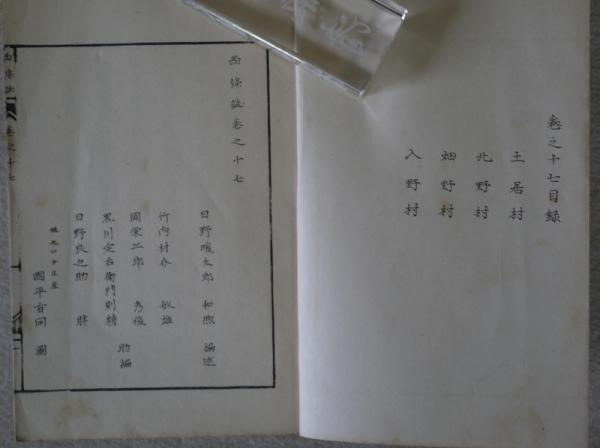 巻之十七目録
土居村
北野村
畑野村
入野村
西條誌巻之十七
日野暖太郎 和煦 編述
竹内材介 敏雄
岡栄二郎 秀俊
黒川定右衛門則精
助編
日野良之助
國平有同 圖
西條誌
巻之十七